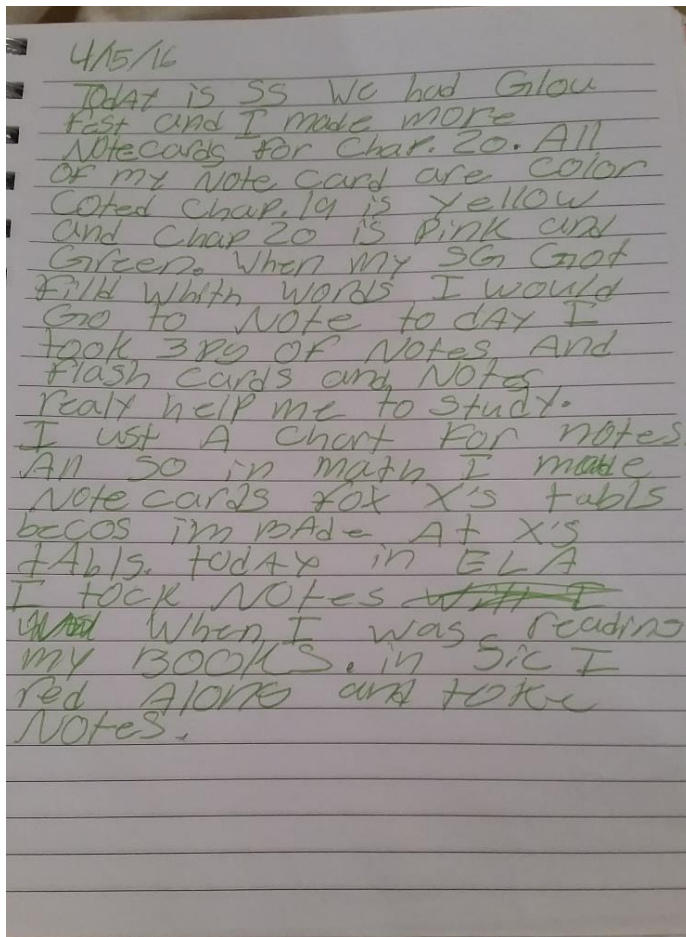 4/15/16
Today is SS We had Glou
fest and I made more
Notecards for Chap. 20. All
of my Note card are color
coted Chap. 19 is yellow
and Chap 20 is pink and
Green. When my SG Got
Filld Whith words I would
Go to Note to day I
took 3 pg of Notes And
Flash cards and Notes
realy help me to study.
I ust A Chart For notes.
All so in math I made
Note cards fox X's tabls
becos im BAde At X's
tAbls. today in ELA
I tock Notes
When I was reading
my BOOKS. in Sic I
red Along and toke
Notes.